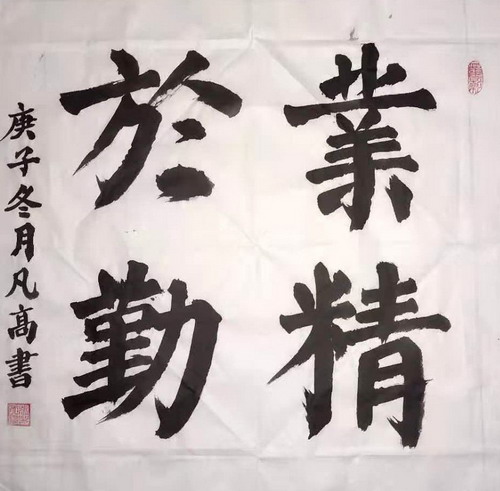 業精
於勤
庚子冬月凡高書